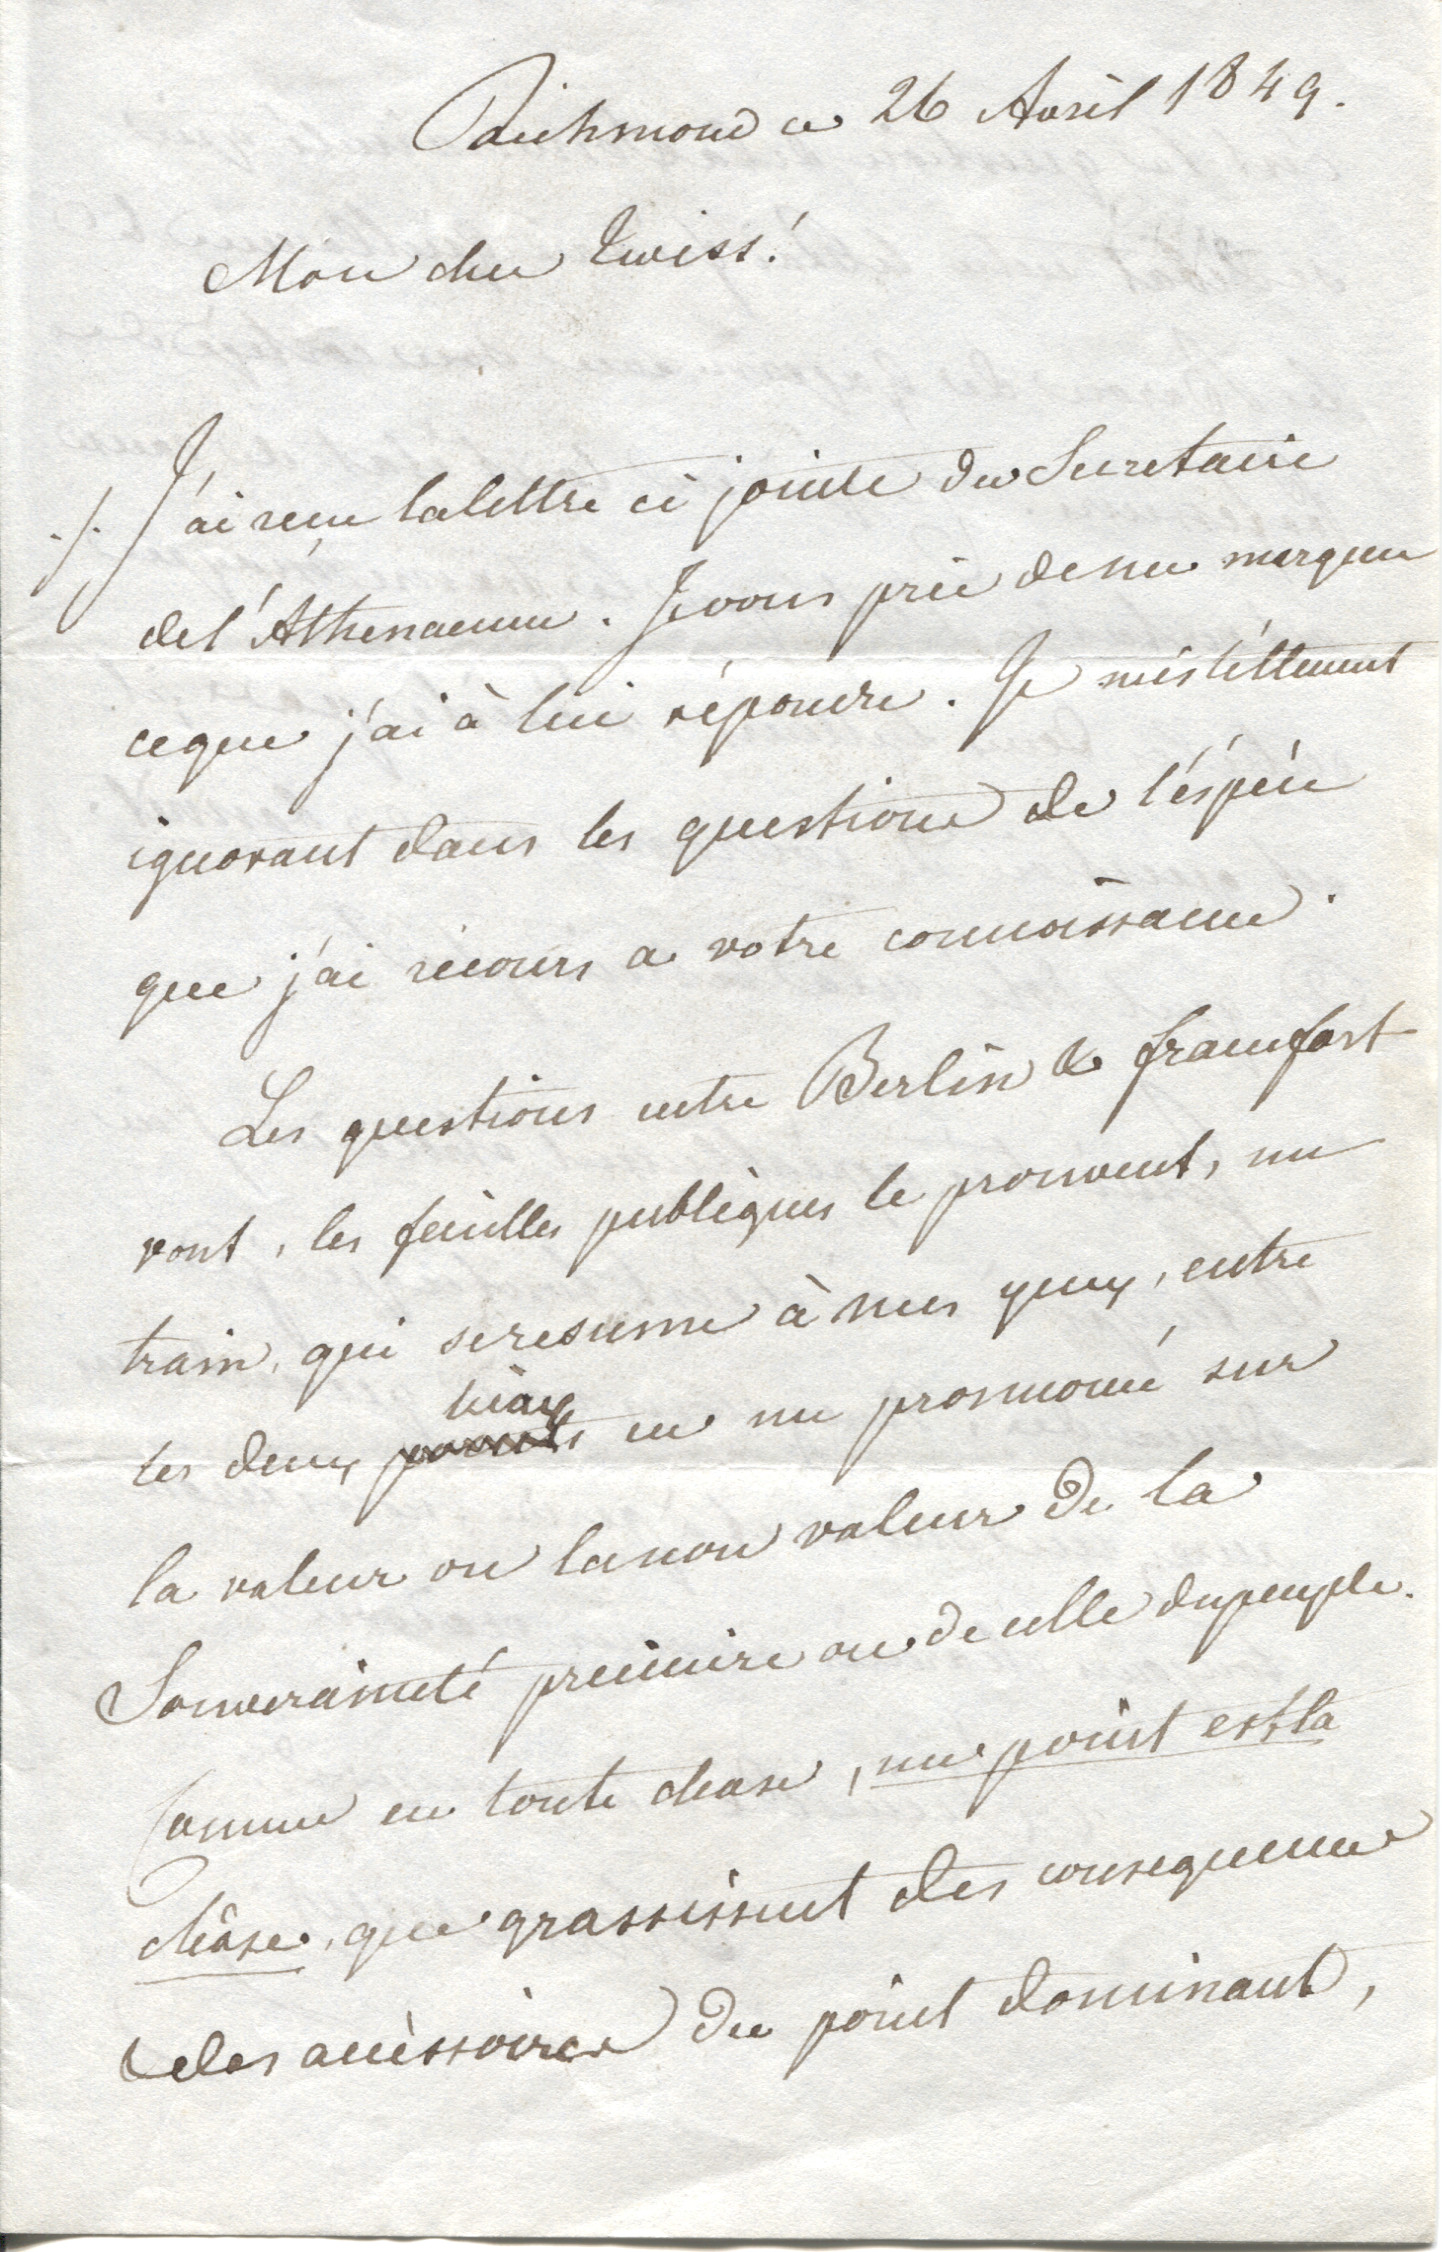 Richmond ce 26 Avril 1849.
Mon cher Twiss!
./. J'ai reçu la lettre ci jointe du Secretaire
de l'Athenaeum. Je vous prie de me marquer
ce que j'ai à lui répondre. Je suis tellement
ignorant dans les questions de l'éspéce
que j'ai récours a votre connoissance.
Les questions entre Berlin & Francfort
vont, les feuilles publiques le prouvent, un
train, qui se resume à mes yeux, entre
lieux
les deux points en un prononcé sur
la valeur ou la non valeur de la
Souveraineté princière ou de celle du peuple.
Comme en toute chose, un point est la
chôse, que grossissent des consequences
& des accèssoires du point dominant,